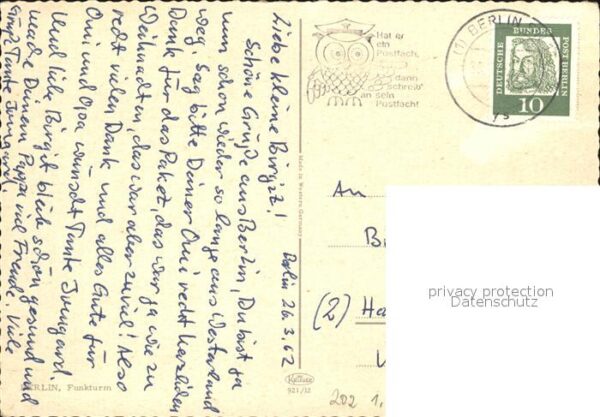 Liebe kleine Birgit!
Schöne Grüße aus Berlin, Du bist ja
nun schon wieder so lange aus Westerland
weg. Sag bitte Deiner Omi recht herzlichen
Dank für das Paket, das war ja wie zu
Weihnachten, das war aber zuviel! Also
recht vielen Dank und alles Gute für
Omi und Opa wünscht Tante Irmgard.
Und liebe Birgit bleib schön gesund und
mache Deinem Pappi viel Freude. Viele
Grüße Tante Irmgard
Berlin 26.3.62
BERLIN, Funkturm
Made in Western Germany
Krüger
921/12
Hat er
ein
Postfach,
dann
schreib
an sein
Postfach!
(1) BERLIN
DEUTSCHE BUNDESPOST BERLIN
10
An
(2) Ha
202 1,
privacy protection
Datenschutz